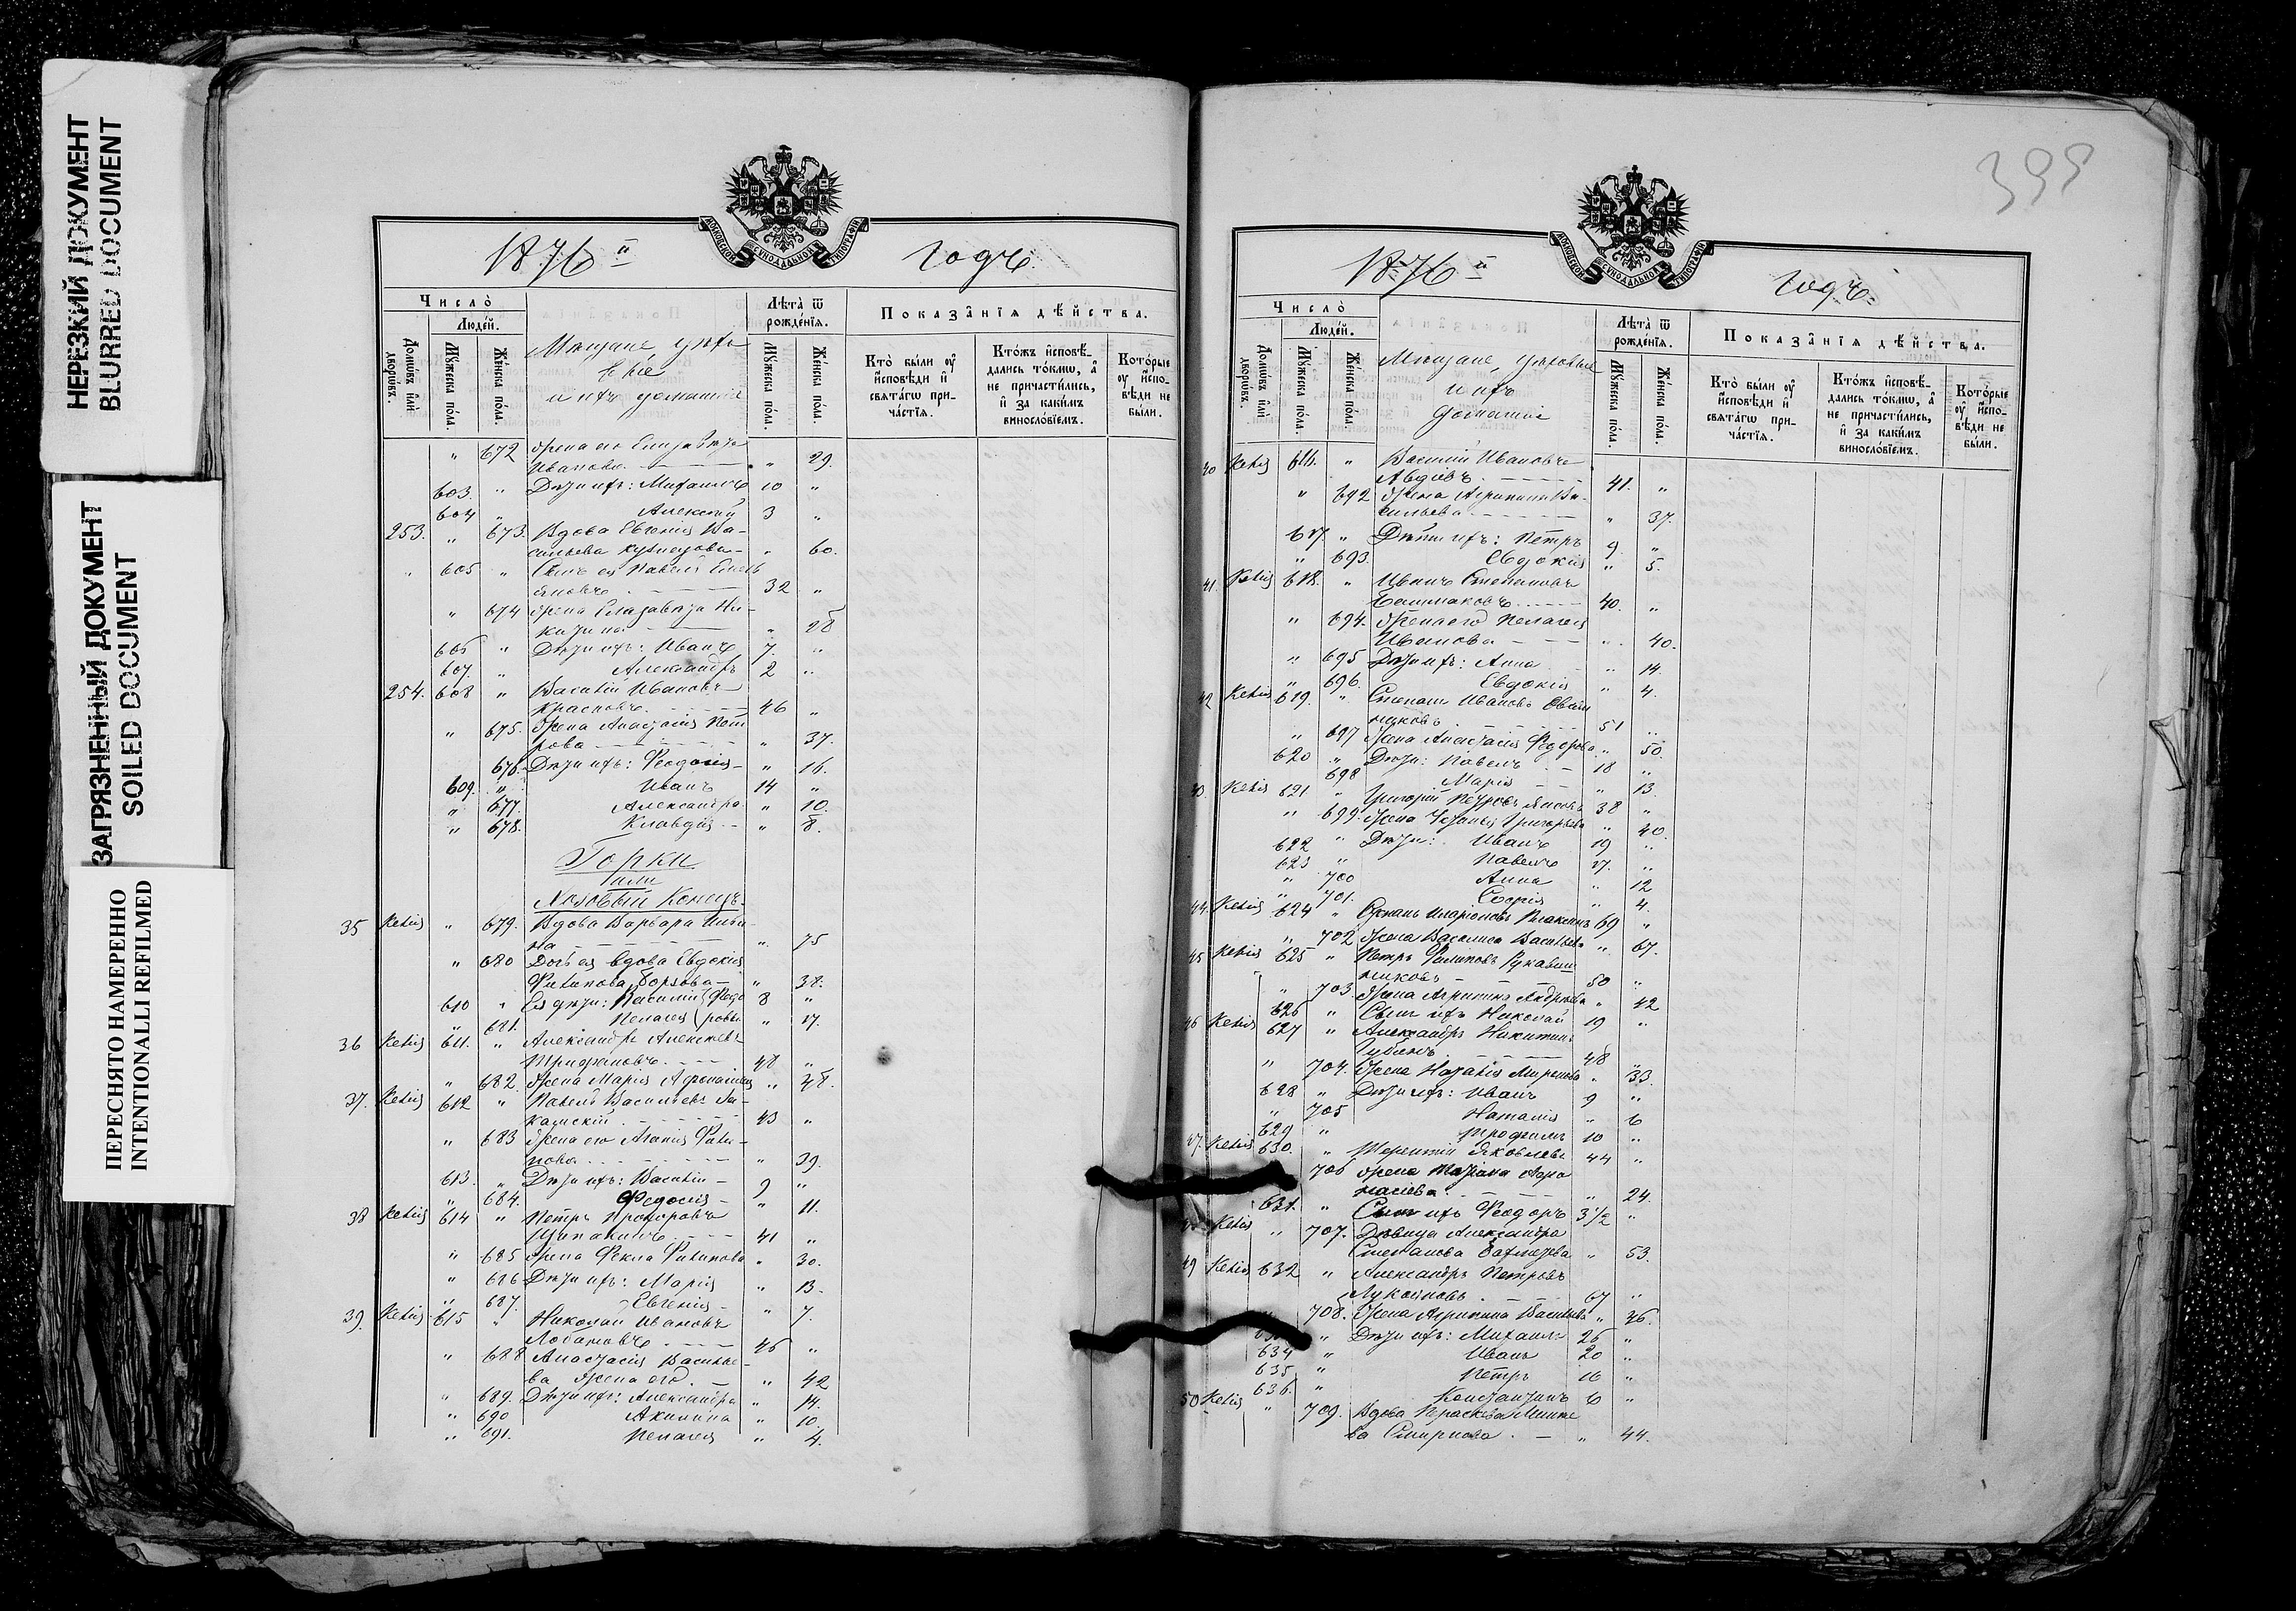 НЕРЕЗКИЙ ДОКУМЕНТ
BLURRED DOCUMENT
ЗАГРЯЗНЕННЫЙ ДОКУМЕНТ
SOILED DOCUMENT
ПЕРЕСНЯТО НАМЕРЕННО
INTENTIONALLI REFILMED
МОСКОВСКОЙ СѴНОДАЛЬНОЙ ТИПОГРАФІИ
1876 й годъ.
Число̀
Людей.
Домѡвъ или дворѡвъ.
Мꙋжеска пола.
Женска пола.
Мѣщане цехо
вые
и ихъ домашніе
Лѣта̀ ѿ рожденїѧ.
Мꙋжеска пола.
Женска пола.
Показанїѧ дѣйства.
Кто̀ были ᲂу҆ исповѣди и свѧтагѡ причастїѧ.
Ктожъ исповѣдались токмѡ, а не причастились, и за какимъ винословїемъ.
Которые ᲂу҆ исповѣди не были.
" 672 Жена его Елизавета
Иванова " 29.
603. " Дети ихъ: Михаилъ 10 "
604 " Алексей 3 "
253. " 673. Вдова Евгенія Ва-
сильева Кузнецова " 60.
" 605 " Сынъ ея Павелъ Емель
яновъ 32 "
" 674 Жена Елизавета Ни-
китина " 28
606 " Дети ихъ: Иванъ 7. "
607. " Александръ 2 "
254. 608 " Василій Ивановъ
Красновъ 46 "
" 675. Жена Анастасія Пет
рова " 37.
676. Дети ихъ: Феодосія " 16.
609. " Иванъ 14 "
" 677. Александра " 10.
" 678. Клавдія " 8.
Горки
или
Конецъ.
35 Ketiz " 679. Вдова Варвара
на " 75
" 680 Дочь ея вдова Евдокія
Филипова Борзова " 38.
610 " Ея дети: Василій Федо 8 "
" 681. Пелагея ровы " 17.
36 611. " Александръ Алексеевъ
Трифановъ 48 "
" 682. Жена Марія Афонасьева " 48.
37. 612 " Павелъ Васильевъ
43 "
" 683 Жена его Агапія Фили-
пова " 39.
613. " Дети ихъ: Василій 9 "
" 684. Федосія " 11.
38 614 " Петръ Прохоровъ
41 "
" 685 Жена Фекла Филипова " 30.
" 686 Дети ихъ: Марія " 13.
" 687. Евгенія " 7.
39. 615 " Николай Ивановъ
Лобановъ 45 "
" 688 Анастасія Василье-
ва жена его " 42
" 689. Дети ихъ: Александра " 14.
" 690 Акилина " 10.
" 691. Пелагея " 4.
399
МОСКОВСКОЙ СѴНОДАЛЬНОЙ ТИПОГРАФІИ
1876 й годъ.
Число̀
Людей.
Домѡвъ или дворѡвъ.
Мꙋжеска пола.
Женска пола.
Мѣщане, цеховые
и ихъ
домашніе
Лѣта̀ ѿ рожденїѧ.
Мꙋжеска пола.
Женска пола.
Показанїѧ дѣйства.
Кто̀ были ᲂу҆ исповѣди и свѧтагѡ причастїѧ.
Ктожъ исповѣдались токмѡ, а не причастились, и за какимъ винословїемъ.
Которые ᲂу҆ исповѣди не были.
40 616. " Василій Ивановъ
Авдѣевъ 41. "
" 692 Жена Агрипина Ва-
сильева " 37.
617 " Дѣти ихъ: Петръ 9. "
" 693. Евдокія " 5.
41. 618. " Иванъ Степановъ
Башмаковъ 40. "
" 694. Жена его Пелагея
Иванова " 40.
" 695 Дети ихъ: Анна " 14.
" 696. Евдокія " 4.
42 619. " Степанъ Ивановъ Овчин
никовъ 51 "
" 697 Жена Анастасія Федорова " 50.
620 " Дети: Павелъ 18 "
698 Марія " 13.
43. 621 " Григорій Петровъ 38 "
" 699. Жена Татьяна Григорьева " 40.
622 " Дети: Иванъ 19 "
623 " Павелъ 17. "
" 700 Анна " 12
" 701. Софія " 4.
44. 624 " Иларіоновъ 69 "
" 702 Жена Василиса Васильева " 67.
45 625 " Петръ Филиповъ Рукавиш
никовъ 50 "
" 703 Жена Агрипина Андреева " 42
626 " Сынъ ихъ Николай 19 "
46 627 " Александръ Никитинъ
48
" 704. Жена Наталія Миронова " 33.
628 " Дети ихъ: Иванъ 9 "
" 705 Наталія " 6
629 " Трофимъ 10 "
47. 630. " Терентій Яковлевъ 44 "
706 Жена Татьяна Афа
насьева " 24.
631. " Сынъ ихъ Феодоръ 3 1/2 "
48 " 707. Девица Александра
Степанова " 53.
49 632 " Александръ Петровъ
Лукояновъ 67 "
" 708. Жена Агрипина Васильева " 36.
" Дети ихъ: Михаилъ 26 "
634 " Иванъ 20 "
635 " Петръ 16 "
636. " Константинъ 6 "
50 " 709. Вдова Прасковья
ва Смирнова " 44.